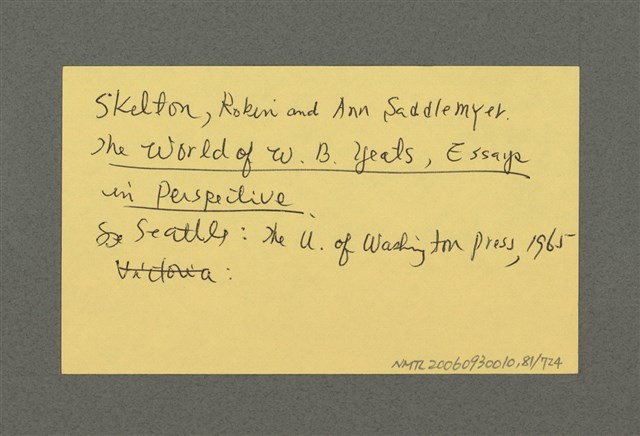 Skelton, Robin and Ann Saddlemyer.
The World of W. B. Yeats, Essays
in Perspective
Seattle: The U. of Washington Press, 1965
Victoria:
NMTL20060930010,81/724